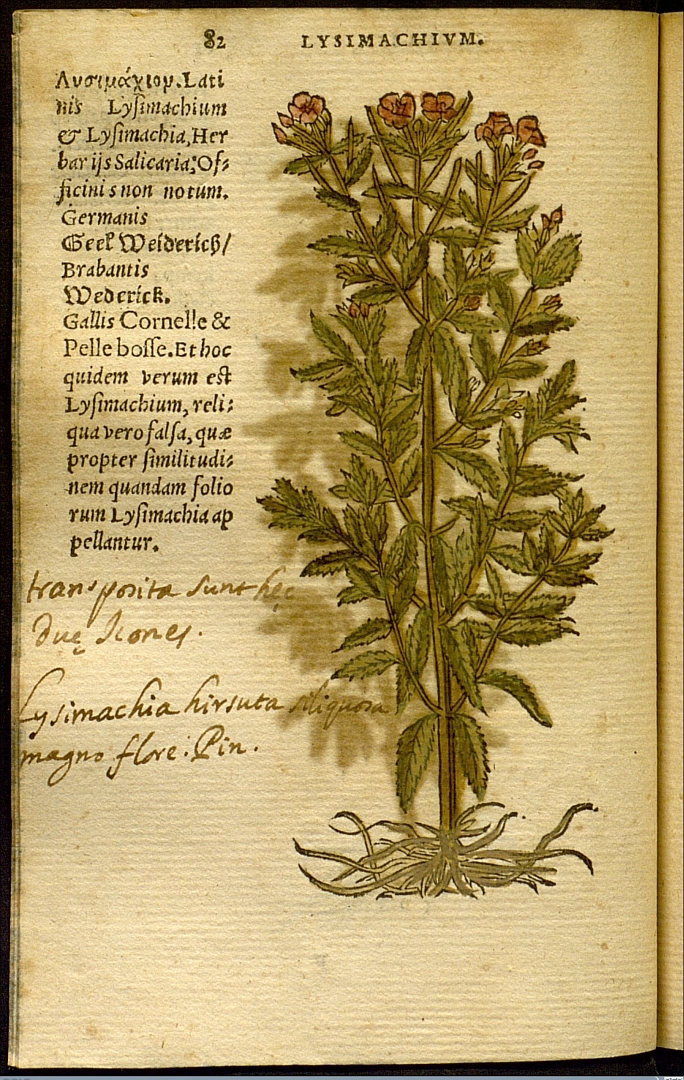 82
LYSIMACHIVM.
Λυσιμάχιον. Lati
nis Lyſimachium
& Lyſimachia, Her
barijs Salicaria; Of⸗
ficinis non notum.
Germanis
Geel Weiderich/
Brabantis
Wederick.
Gallis Cornelle &
Pelle boſſe. Et hoc
quidem verum est
Lyſimachium, reli⸗
qua vero falſa, quæ
propter ſimilitudi⸗
nem quandam folio
rum Lyſimachia ap
pellantur.
transposita sunt hęc
duę Icones.
Lysimachia hirsuta siliquosa
magno flore. Pin.